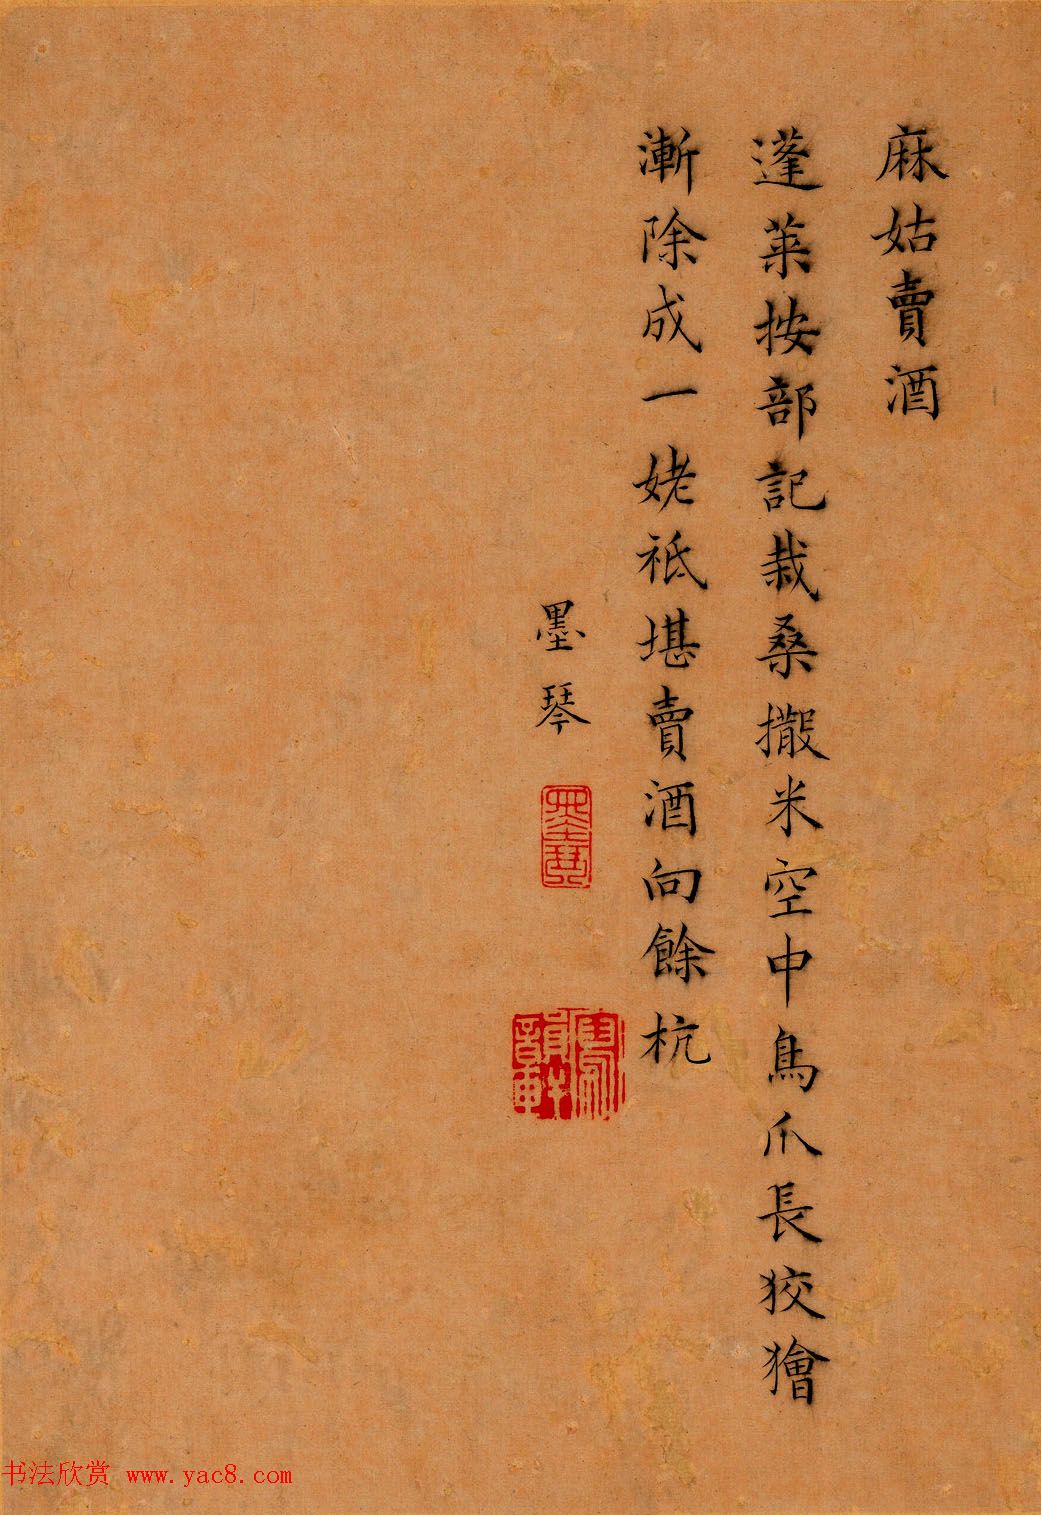 麻姑賣酒
蓬莱按部記栽桑撒米空中鳥爪長狡獪
漸除成一姥祗堪賣酒向餘杭
墨琴
墨琴
书法欣赏 www.yac8.com